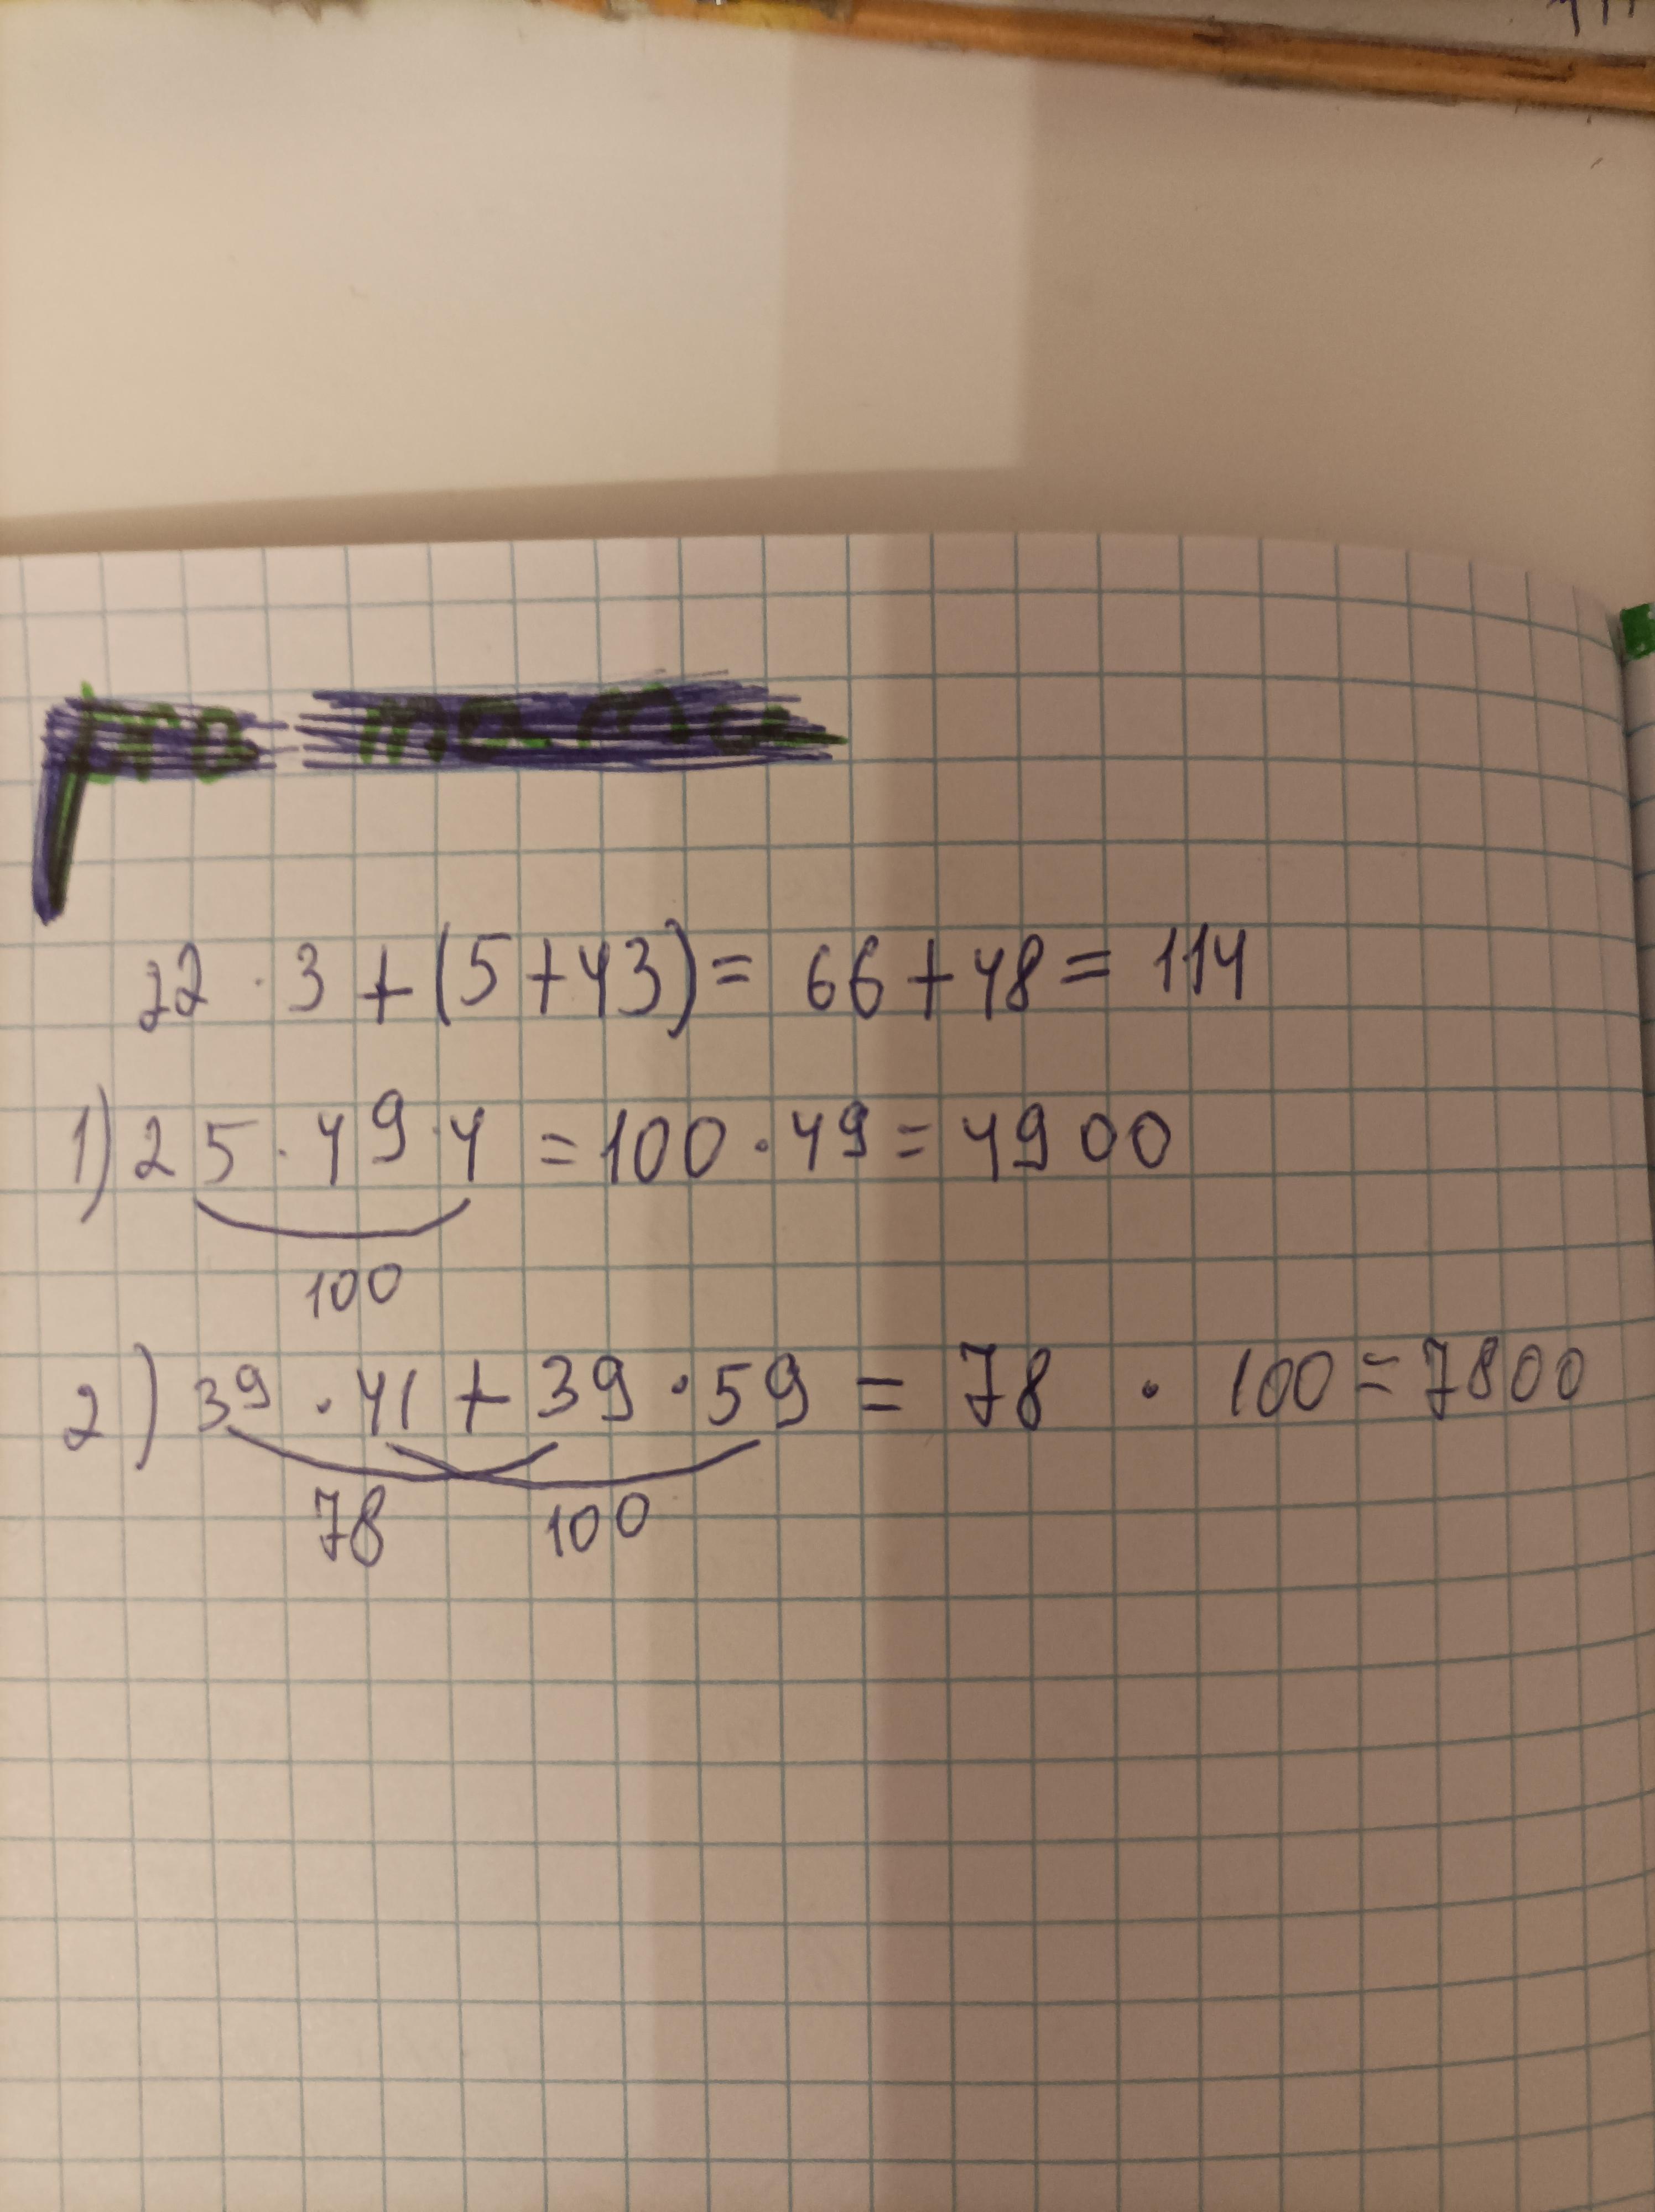 22 · 3 + (5 + 43) = 66 + 48 = 114
1) 25 · 49 · 4 = 100 · 49 = 4900
100
2) 39 · 41 + 39 · 59 = 78 · 100 = 7800
78 100